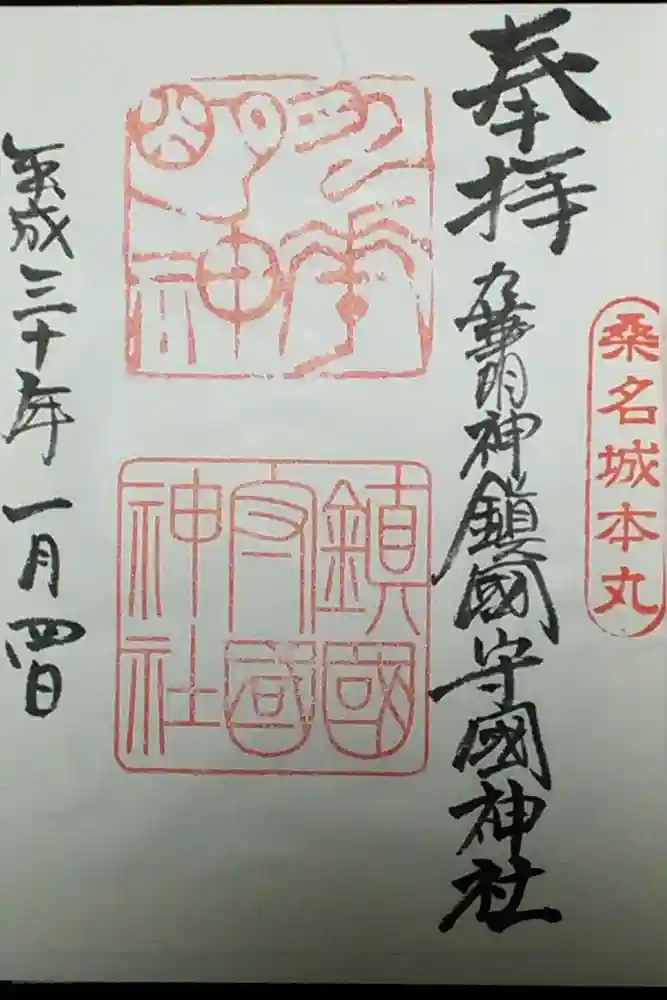 桑名城本丸
奉拝
九華明神鎮國守國神社
鎮國
守國
神社
平成三十年一月四日